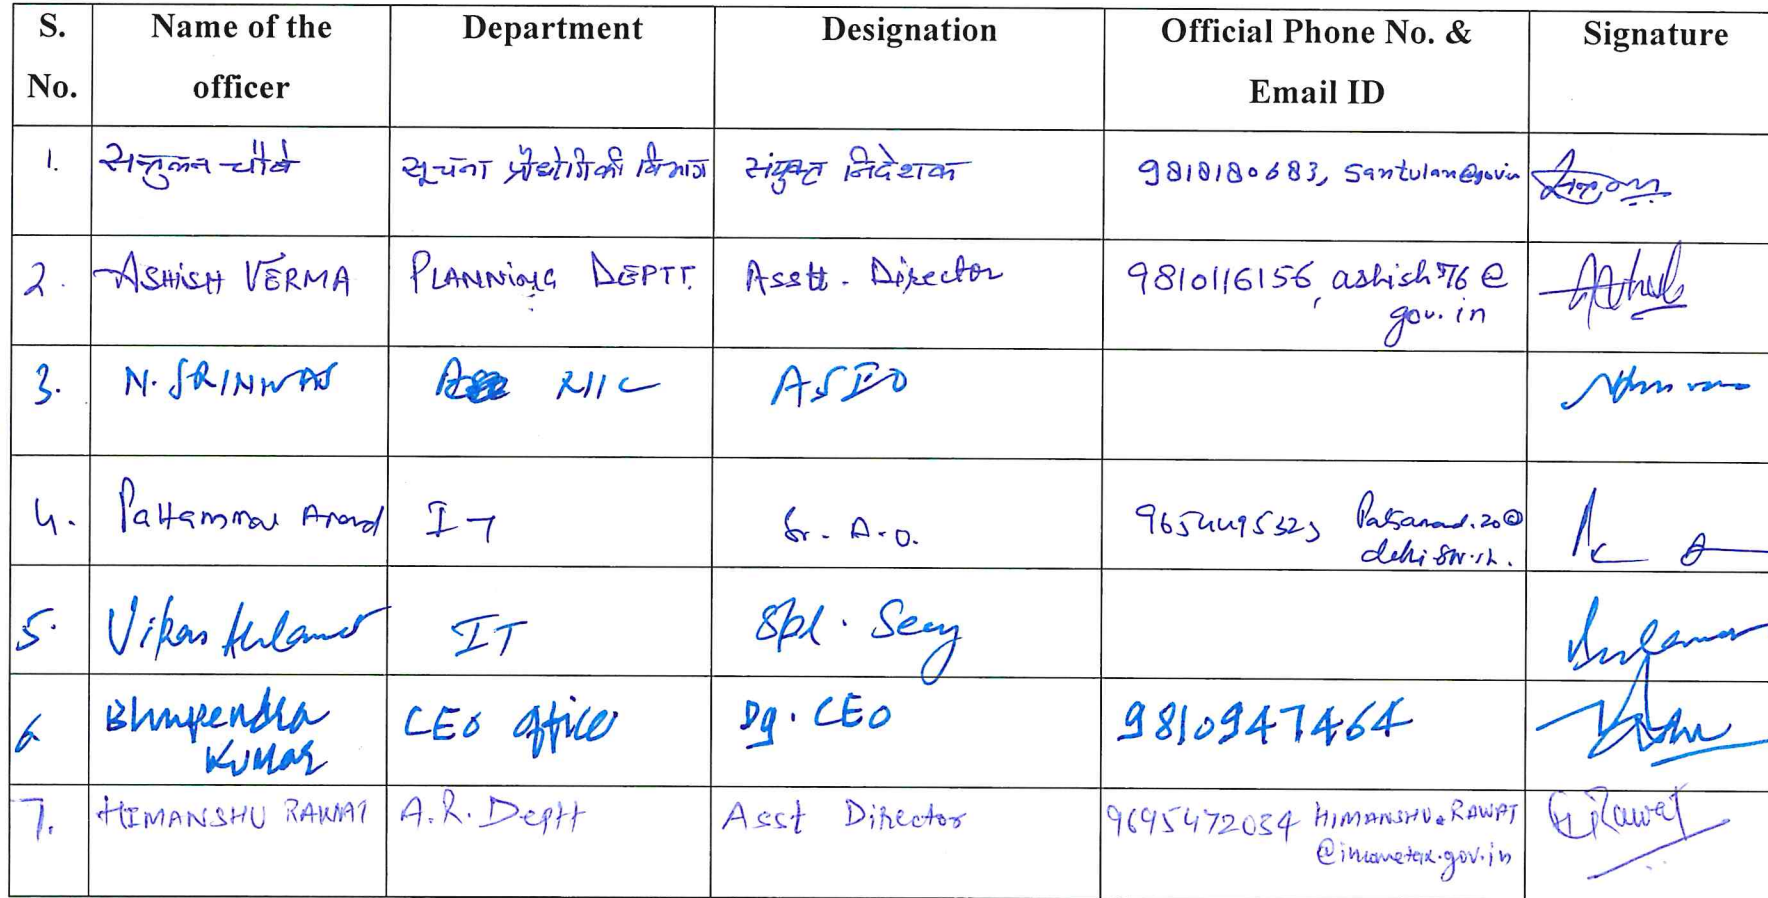 S. No. Name of the officer Department Designation Official Phone No. & Email ID Signature
1. सन्तुलन चौबे सूचना प्रौद्योगिकी विभाग संयुक्त निदेशक 9818180683, santulan@gov.in
2. ASHISH VERMA PLANNING DEPTT. Asstt. Director 9810116156, ashish76@
gov.in
3. N. SRINIVAS NIC ASIO
4. Pattammal Anand IT Sr. A.O.
5. Vikas IT Spl. Secy
6 Bhupendra CEO office Dy. CEO 9810947464
Kumar
7. HIMANSHU RAWAT A.R. Deptt Asst Director 9695472034 HIMANSHU.RAWAT
@incometax.gov.in H Rawat